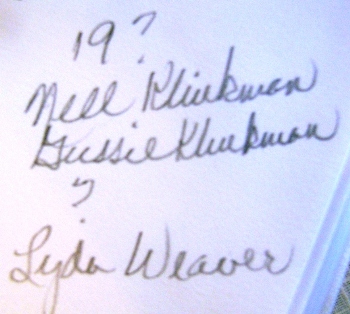 19?
Nell Klinkman
Gussie Klinkman
?
Lyda Weaver